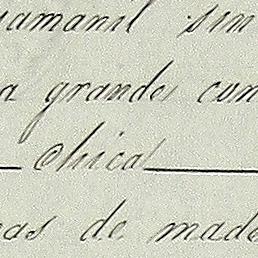 uamanil sin
a grandes cum
Chical
as de made